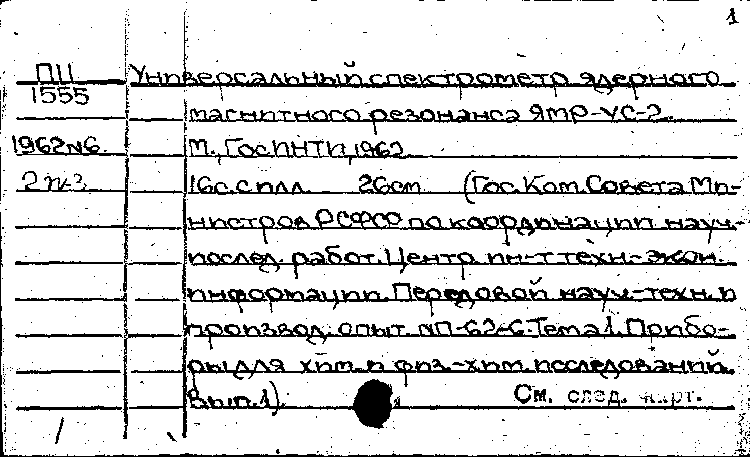 1
ПЦ Универсальный спектрометр ядерного
1555
магнитного резонанса ЯМР-УС-2.
1962 №6. М., ГосИНТИ, 1962
2 16с. с илл. 26cm (Гос. Ком. Совета Ми-
нистров РСФСР по координации науч.-
исслед. работ. Центр. ин-т техн.-экон.
информации. Передовой науч.-техн. и
производ. опыт. №П-62-6. Тема 1. Прибо-
ры для хим. и физ.-хим. исследований.
Вып. 1)
См. след. карт.